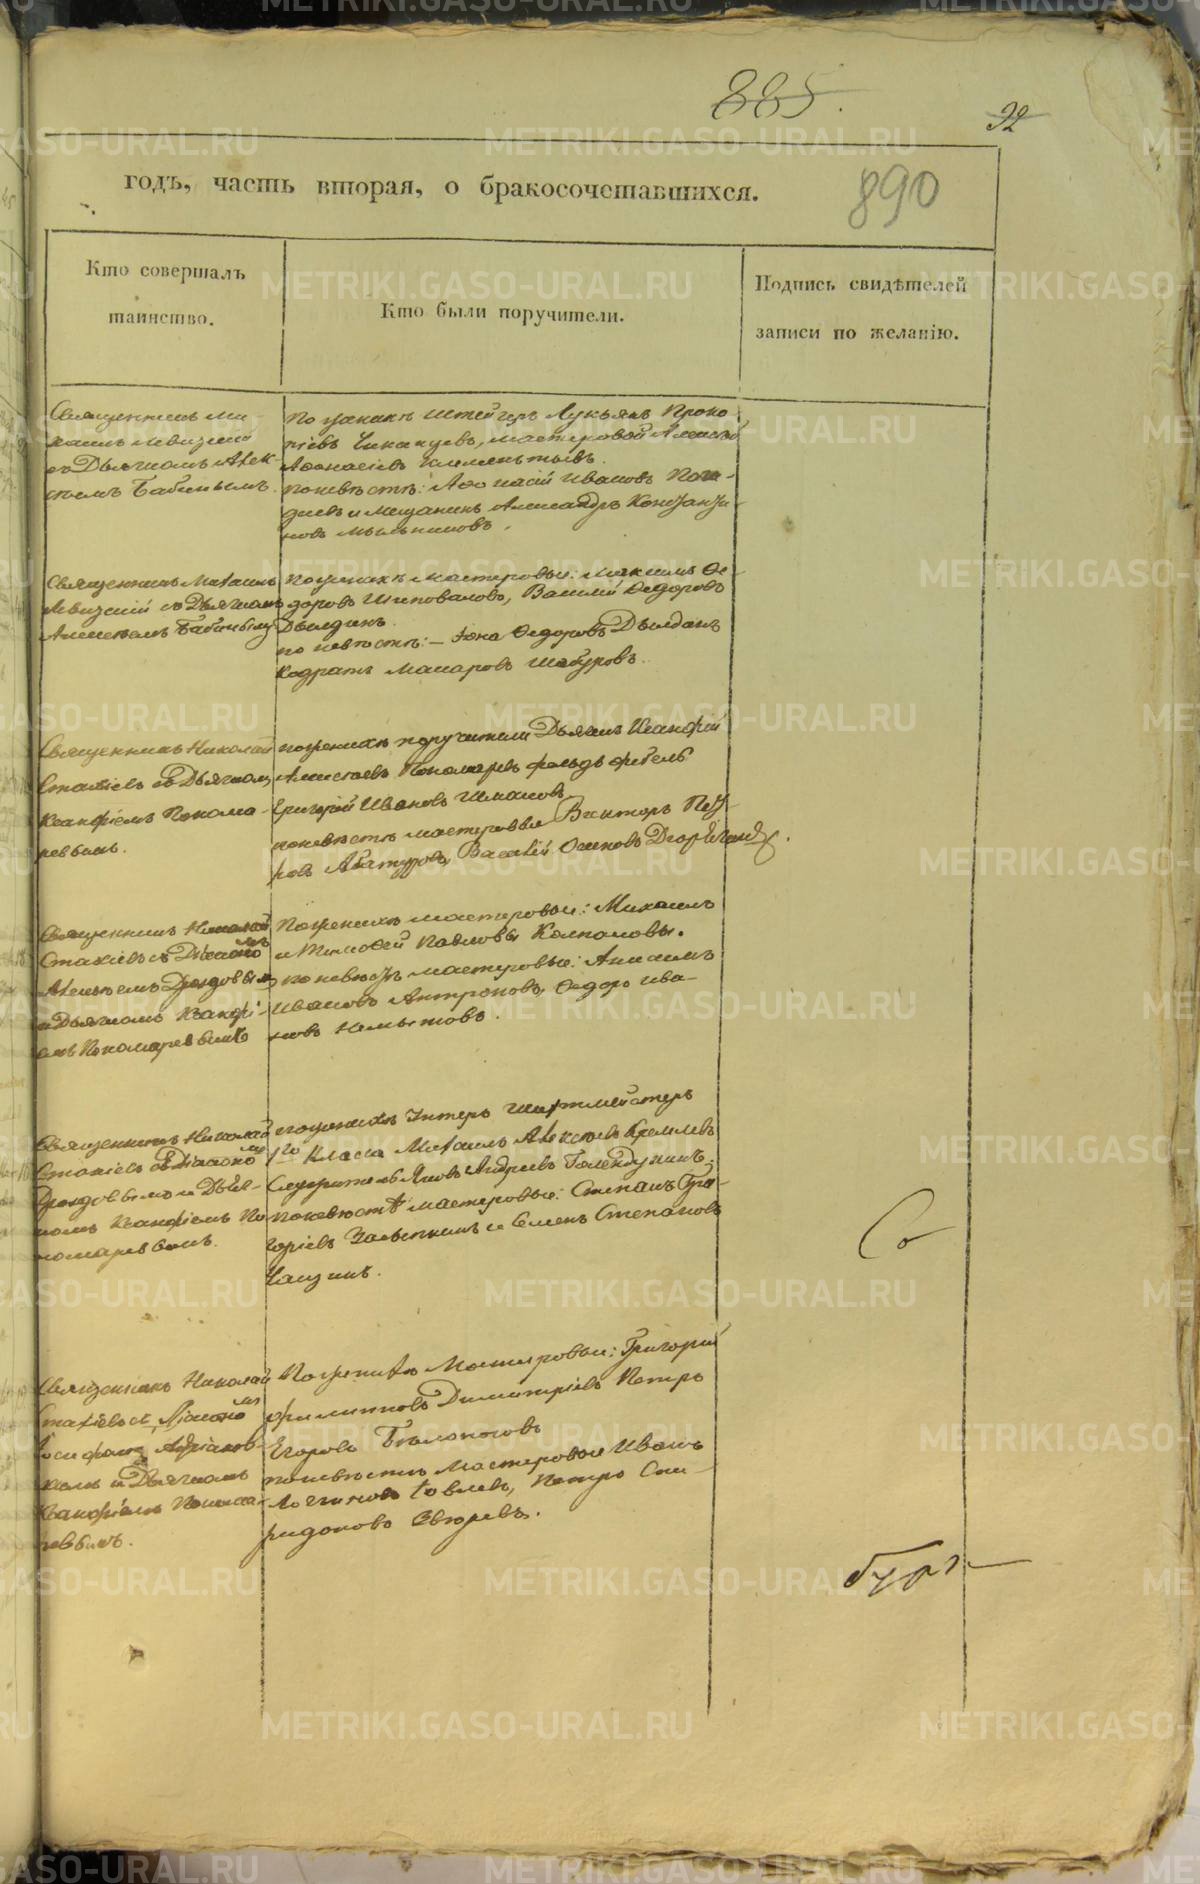 885.
32
годъ, часть вторая, о бракосочетавшихся.
890
Кто совершалъ
таинство.
Кто были поручители.
Подпись свидѣтелей
записи по желанію.
Священникъ Ми-
хаилъ Левицкій
съ Дьячкомъ Алек-
сѣемъ Бабинымъ.
По женихѣ Штейгеръ Лукьянъ Проко-
піевъ мастеровой Алексѣй
Афанасіевъ Клементьевъ.
по невѣстѣ: Афонасій Ивановъ
и Мещанинъ Александръ Константи-
новъ Мыльниковъ.
Священникъ Михаилъ
Левицкій съ Дьячкомъ
Алексѣемъ Бабинымъ
По женихѣ мастеровые: Максимъ Ѳе-
доровъ Шиповаловъ, Василій Ѳедоровъ
Дылдинъ.
по невѣстѣ: – Ѳедоровъ Дылдинъ
Кодратъ Макаровъ Шабуровъ.
Священникъ Николай
Стахіевъ съ Дьячкомъ
Ксанфіемъ Понома-
ревымъ.
по женихѣ поручители Дьячекъ Ксанфій
Алексѣевъ Пономаревъ фельдфебель
Григорій Ивановъ Шмаковъ.
по невѣстѣ мастеровые Викторъ Пет-
ровъ Абатуровъ, Василій Осиповъ
Священникъ Николай
Стахіевъ съ Діакономъ
Алексѣемъ Дроздовымъ
и Дьячкомъ Ксанфі-
емъ Пономаревымъ
По женихѣ мастеровые: Михаилъ
и Тимофей Павловы Колпаковы.
по невѣстѣ мастеровые: Анисимъ
Ивановъ Антроповъ, Ѳедоръ Ива-
новъ Немытовъ.
Священникъ Николай
Стахіевъ съ Діакономъ
Дроздовымъ и Дьяч-
комъ Ксанфіемъ По-
номаревымъ.
по женихѣ Унтеръ Шихтмейстеръ
1го Класса Михаилъ Алексѣевъ Кремлевъ
Служитель Яковъ Андреевъ Голендухинъ.
по невѣстѣ мастеровые: Степанъ Гри-
горіевъ Засыпкинъ и Семенъ Степановъ
Чащинъ.
Священникъ Николай
Стахіевъ съ Діакономъ
Іосифомъ
и Дьячкомъ
Ксанфіемъ Понома-
ревымъ.
По женихѣ Мастеровые: Григорій
Филиповъ Димитріевъ Петръ
Егоровъ Бѣлоносовъ
по невѣстѣ Мастеровые Иванъ
Логиновъ Іовлевъ, Петръ Спи-
ридоновъ Звѣревъ.
METRIKI.GASO-URAL.RU